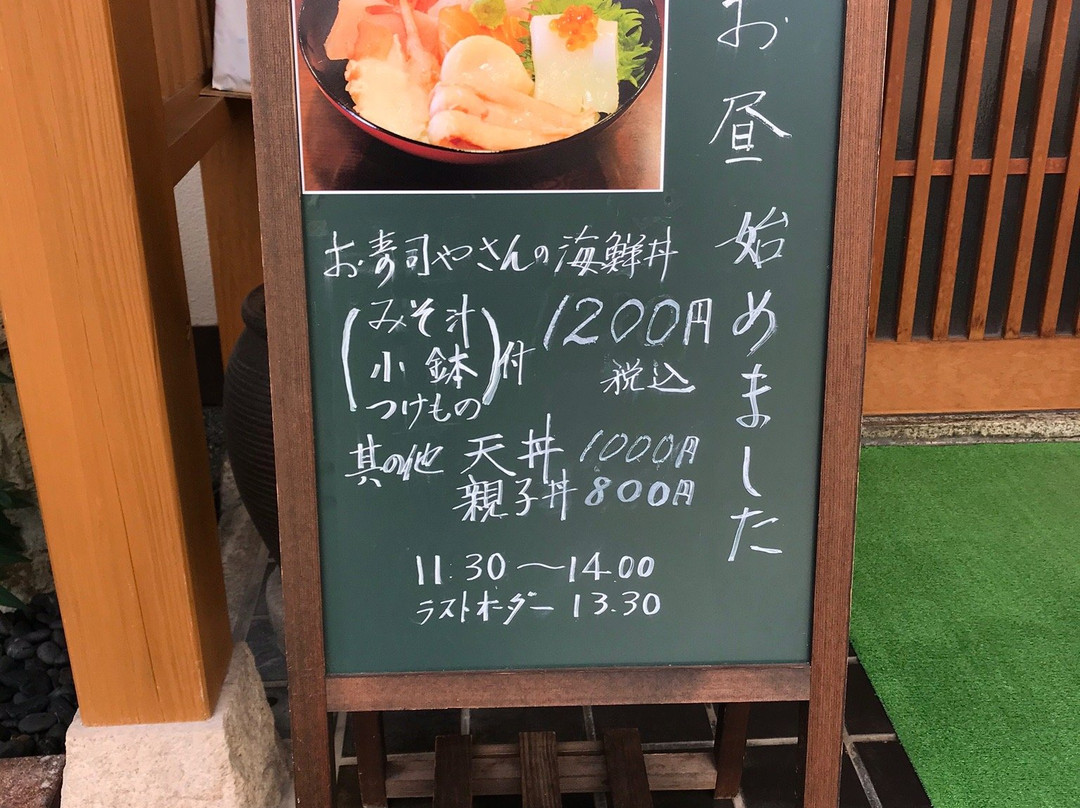 お昼始めました
お寿司やさんの海鮮丼
(みそ汁
小鉢
つけもの)付
1200円
税込
其の他 天丼 1000円
親子丼 800円
11.30〜14.00
ラストオーダー 13.30